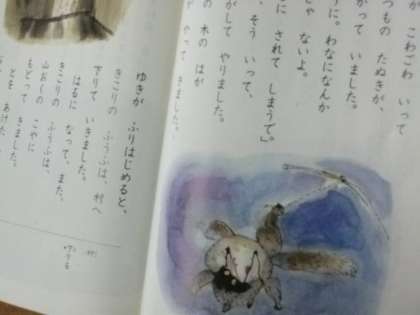 が こわごわ いって
つもの たぬきが、
かって いました。
うに。わなになんか
じゃ ないよ。
に されて しまうで。」
、そう いって、
がして やりました。
の 木の はが
が やって きました。
ゆきが ふりはじめると、
きこりの ふうふは、村へ
下りて いきました。
はるに なって、また、
きこりの ふうふは、
山おくの こやに
もどって きました。
とを あけた
村
下りる